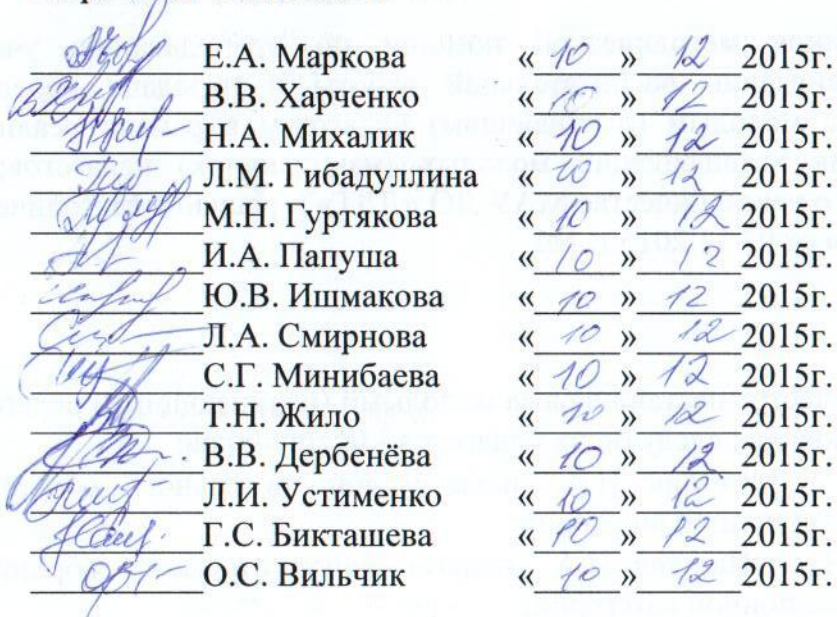 Е.А. Маркова « 10 » 12 2015г.
В.В. Харченко « 10 » 12 2015г.
Н.А. Михалик « 10 » 12 2015г.
Л.М. Гибадуллина « 10 » 12 2015г.
М.Н. Гуртякова « 10 » 12 2015г.
И.А. Папуша « 10 » 12 2015г.
Ю.В. Ишмакова « 10 » 12 2015г.
Л.А. Смирнова « 10 » 12 2015г.
С.Г. Минибаева « 10 » 12 2015г.
Т.Н. Жило « 10 » 12 2015г.
В.В. Дербенёва « 10 » 12 2015г.
Л.И. Устименко « 10 » 12 2015г.
Г.С. Бикташева « 10 » 12 2015г.
О.С. Вильчик « 10 » 12 2015г.